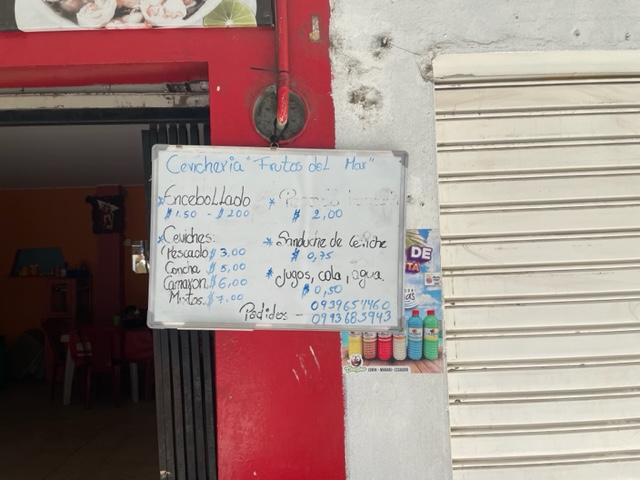 Cevicheria "Frutos del Mar"
* Encebollado
$1.50 - $2.00
*
$ 2,00
* Ceviches:
Pescado $ 3,00
Concha $ 5,00
Camaron $ 6,00
Mixtos. $ 7,00
* Sanduche de ceviche
$ 0,75
* Jugos, cola, agua
$ 0,50
Pedidos -
0993683943
DE
TA
EDWIN - MANABI - ECUADOR